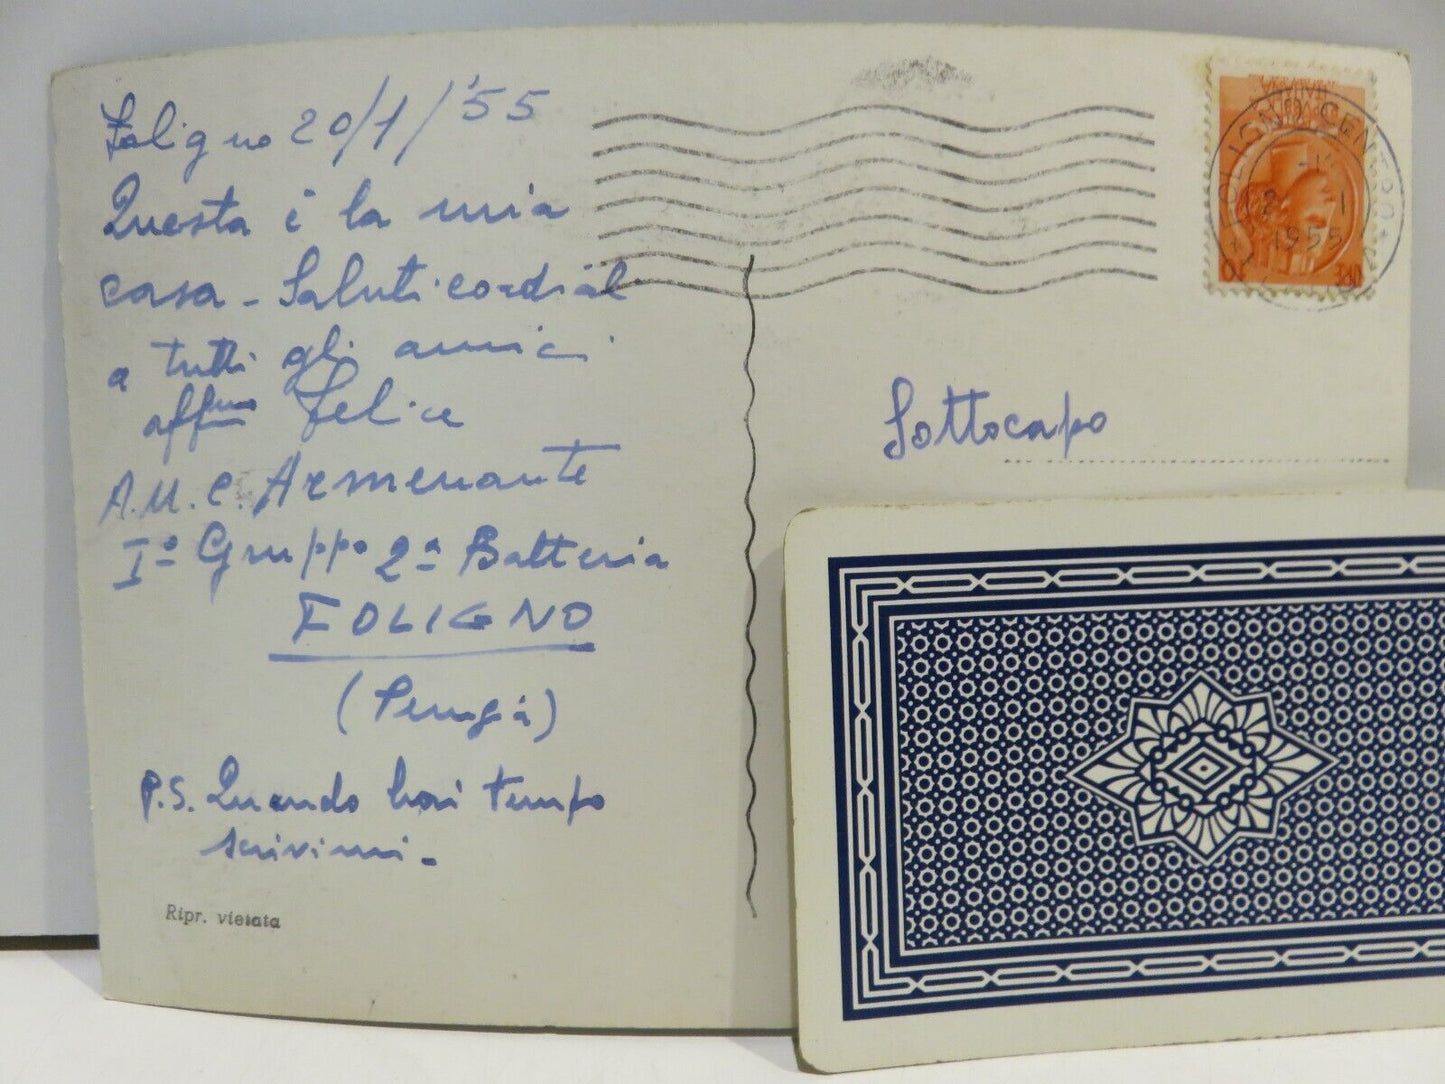 Foligno 20/1/'55
Questa è la mia
casa - Saluti cordiali
a tutti gli amici
aff.mo Felice
A.U.C. Armenante
Iº Gruppo 2ª Batteria
FOLIGNO
(Perugia)
P.S. Quando hai tempo
scrivimi -
Ripr. vietata
FOLIGNO CENTRO
1955
Sottocapo